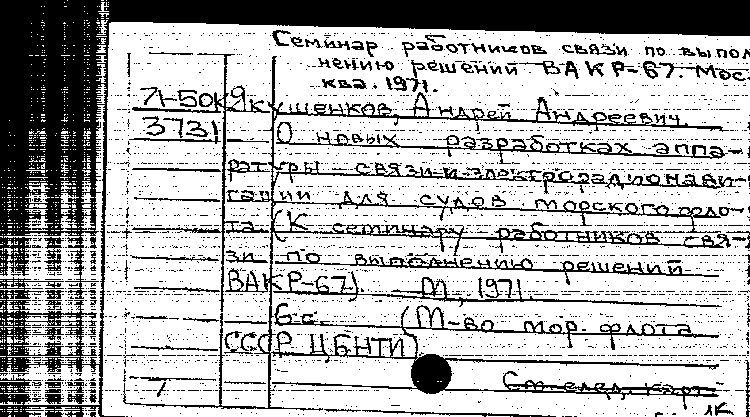 Семинар работников связи по выпол
нению решений ВАКР-67. Мос-
ква. 1971.
Л-50к Якушенков, Андрей Андреевич.
3731 О новых разработках аппа-
ратуры связи и электрорадионави-
гации для судов морского фло-
та (К семинару работников свя-
зи по выполнению решений
ВАКР-67). М., 1971.
6 с. (М-во мор. флота
СССР. ЦБНТИ)
См. след. карт.